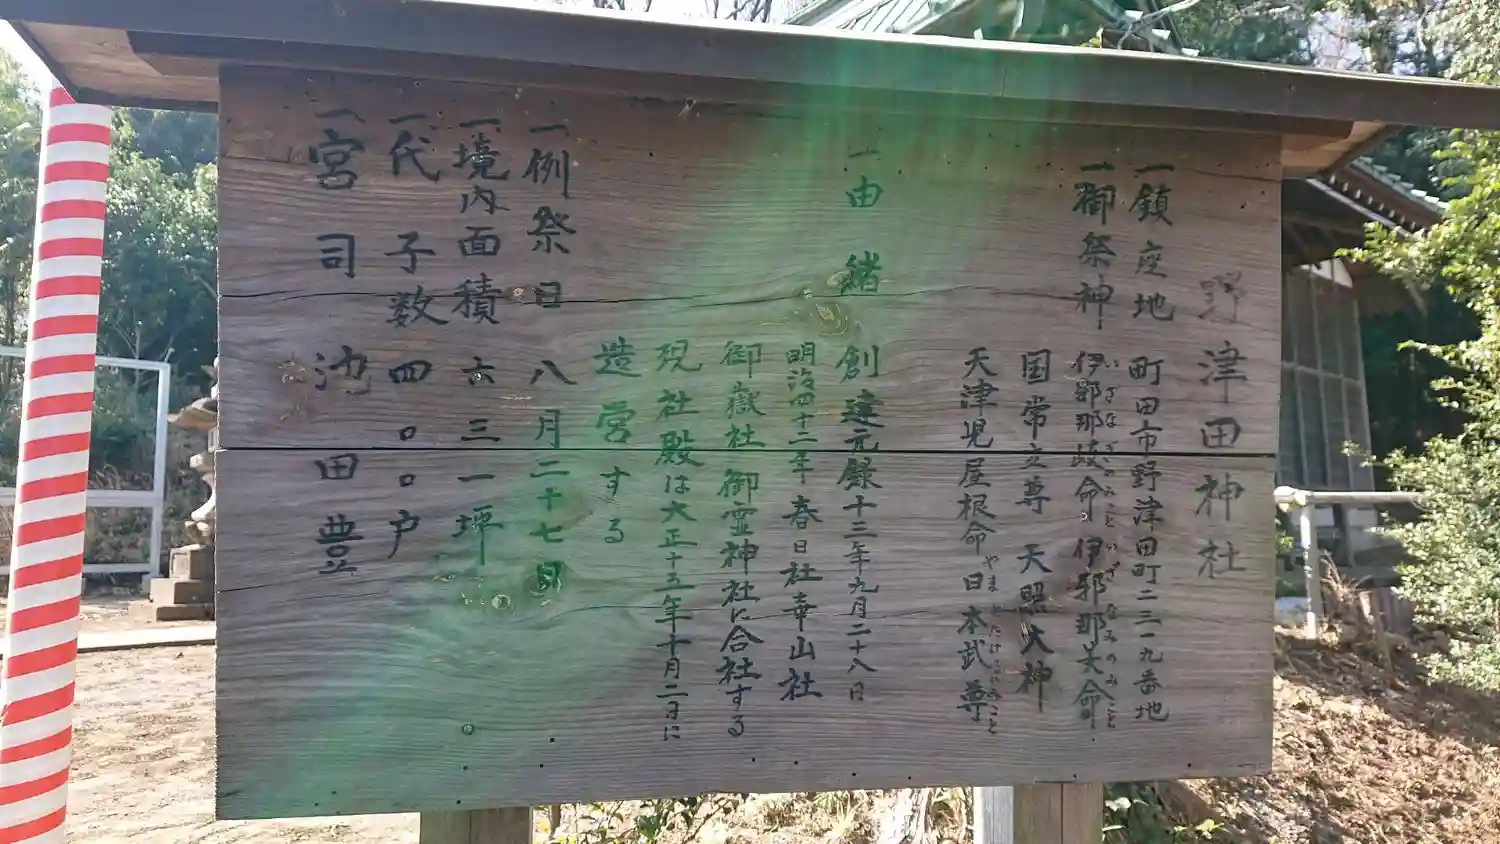 野津田神社
一鎮座地 町田市野津田町二三一九番地
一御祭神 伊邪那岐命 伊邪那美命
いざなぎのみこと いざなみのみこと
国常立尊 天照大神
天津児屋根命 日本武尊
やまとたけるのみこと
一由緒 創建元録十三年九月二十八日
明治四十二年春日社華山社
御嶽社 御霊神社に合社する
現社殿は大正十五年十月二日に
造営する
一例祭日 八月二十七日
一境内面積 六三一坪
一代子数 四〇〇戸
一宮司 池田豊